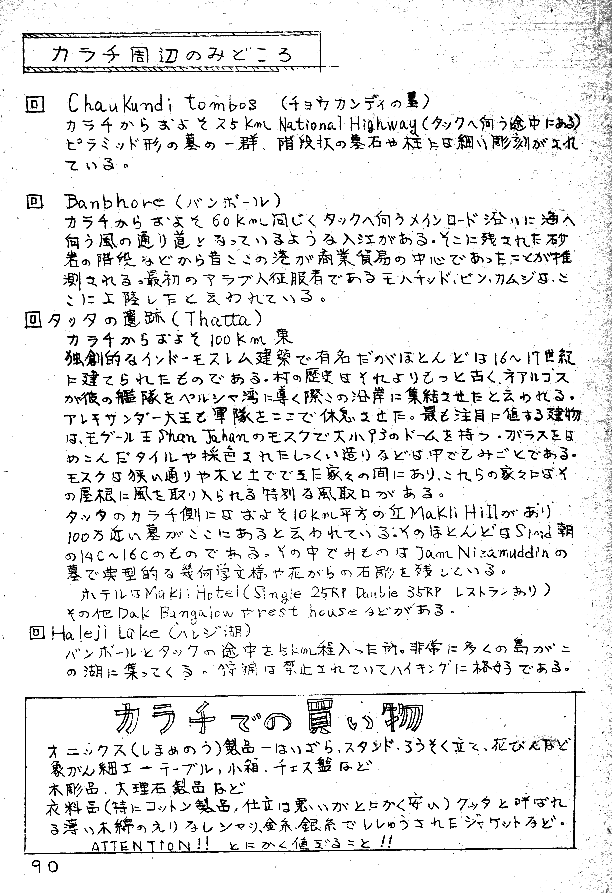 カラチ周辺のみどころ
回 Chaukundi tombos (チョウカンディの墓)
カラチからおよそ25km National Highway(タックへ向う途中にある)
ピラミッド形の墓の一群、階段状の墓石や柱には細い彫刻がされ
ている。
回 Banbhore (バンボール)
カラチからおよそ60km同じくタックへ向うメインロード沿いに海へ
向う風の通り道となっているような入江がある。そこに残された砂
岩の階段などから昔ここの港が商業貿易の中心であったことが推
測される。最初のアラブ人征服者であるモハチッド.ビン.カムジは、こ
こに上陸したと云われている。
回 タッタの遺跡(Thatta)
カラチからおよそ100km東
独創的なインドーモスレム建築で有名だがほとんどは16〜17世紀
に建てられたものである。村の歴史はそれよりもっと古く、ネアルコス
が彼の艦隊をペルシャ湾に導く際この沿岸に集結させたと云われる。
アレキサンダー大王も軍隊をここで休息させた。最も注目に値する建物
は、モグール王Shan Jahanのモスクで大小93のドームを持つ。ガラスをは
めこんだタイルや採色されたしっくい造りなどは中でもみごとである。
モスクは狭い通りや木と土でできた家々の間にあり、これらの家々にはそ
の屋根に風を取り入られる特別な風取口がある。
タッタのカラチ側にはおよそ10km平方の丘Makli Hillがあり
100万近い墓がここにあると云われている。そのほとんどはSind朝
の14C〜16Cのものである。その中でみものはJam Nizamuddinの
墓で典型的な幾何学文様や花がらの石彫を残している。
ホテルはMakli Hotel(Single 25RP Double 35RP レストランあり)
その他Dak Bangalowやrest houseなどがある。
回 Haleji Lake (ハレジ湖)
バンボールとタックの途中を5km程入った所。非常に多くの鳥がこ
の湖に集ってくる。狩猟は禁止されていてハイキングに格好である。
カラチでの買い物
オニックス(しまめのう)製品ーはいざら、スタンド、ろうそく立て、花びんなど
象がん細工ーテーブル、小箱、チェス盤など
木彫品、大理石製品など
衣料品(特にコットン製品、仕立は悪いがとにかく安い)クッタと呼ばれ
る薄い木綿のえりなしシャツ、金糸、銀糸でししゅうされたジャケットなど。
ATTENTION!! とにかく値ぎること!!
90